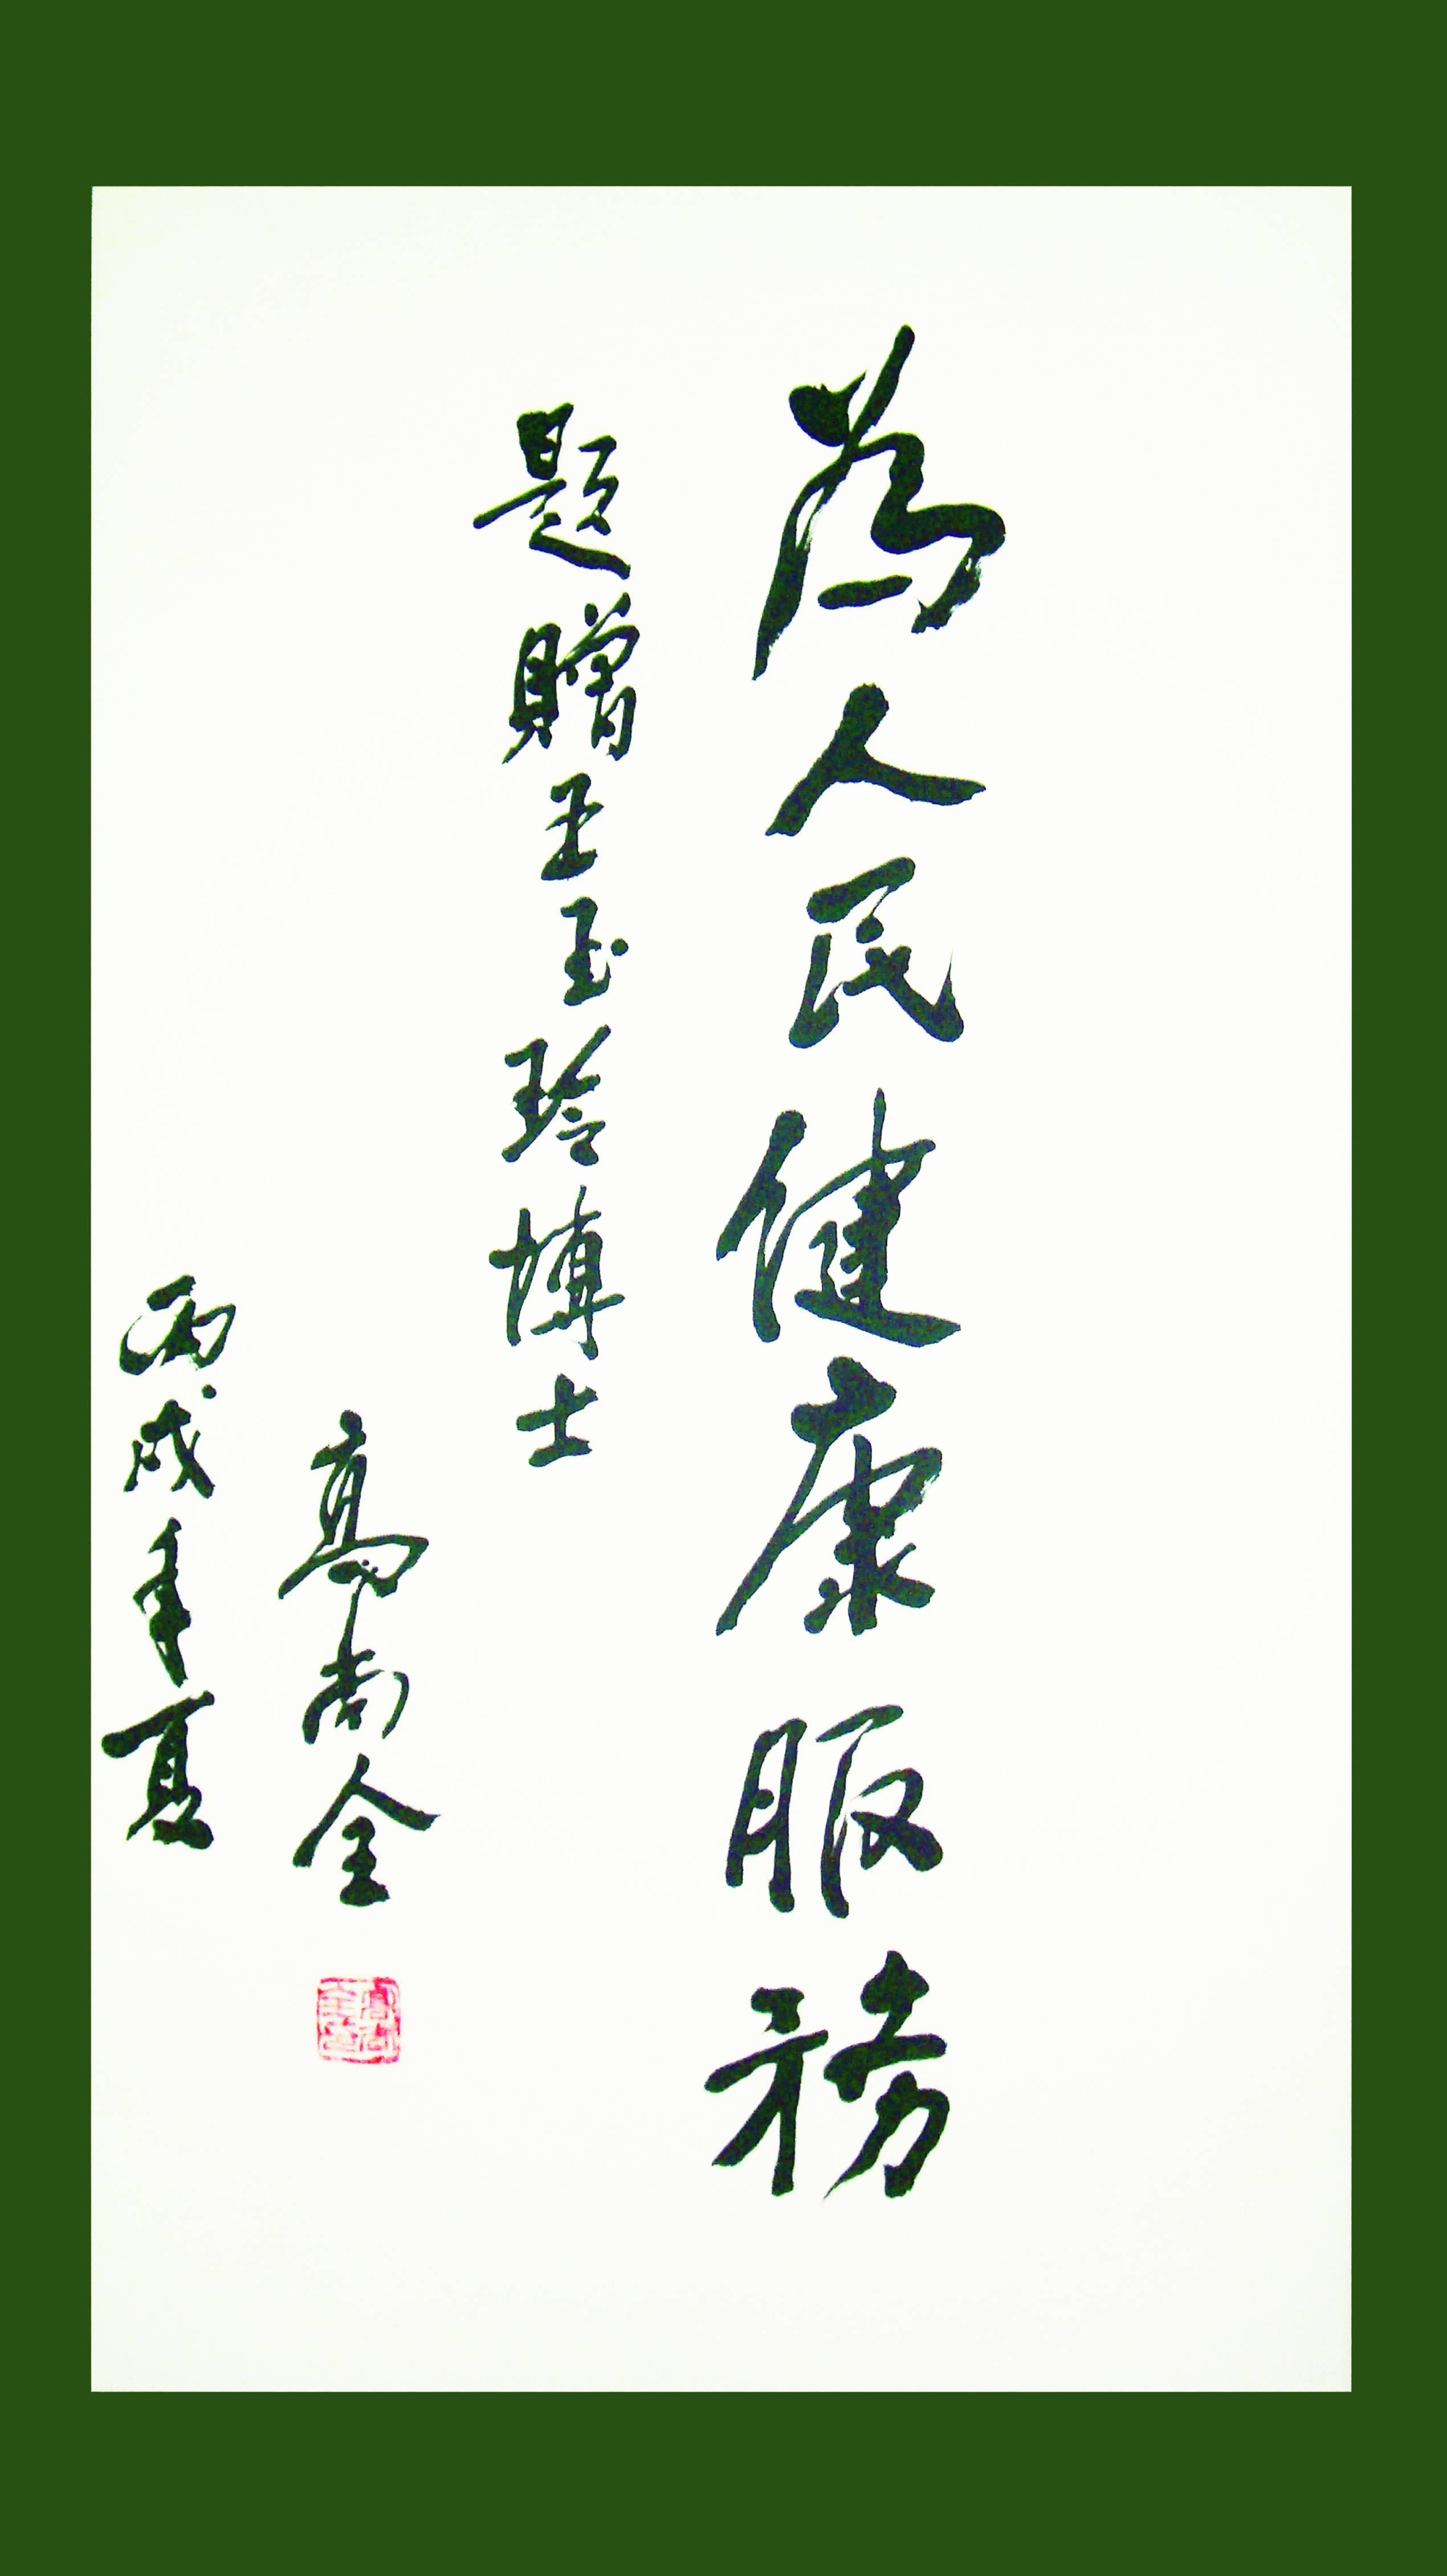 為人民健康服務
題贈王玉玲博士
高尚全
丙戌年夏